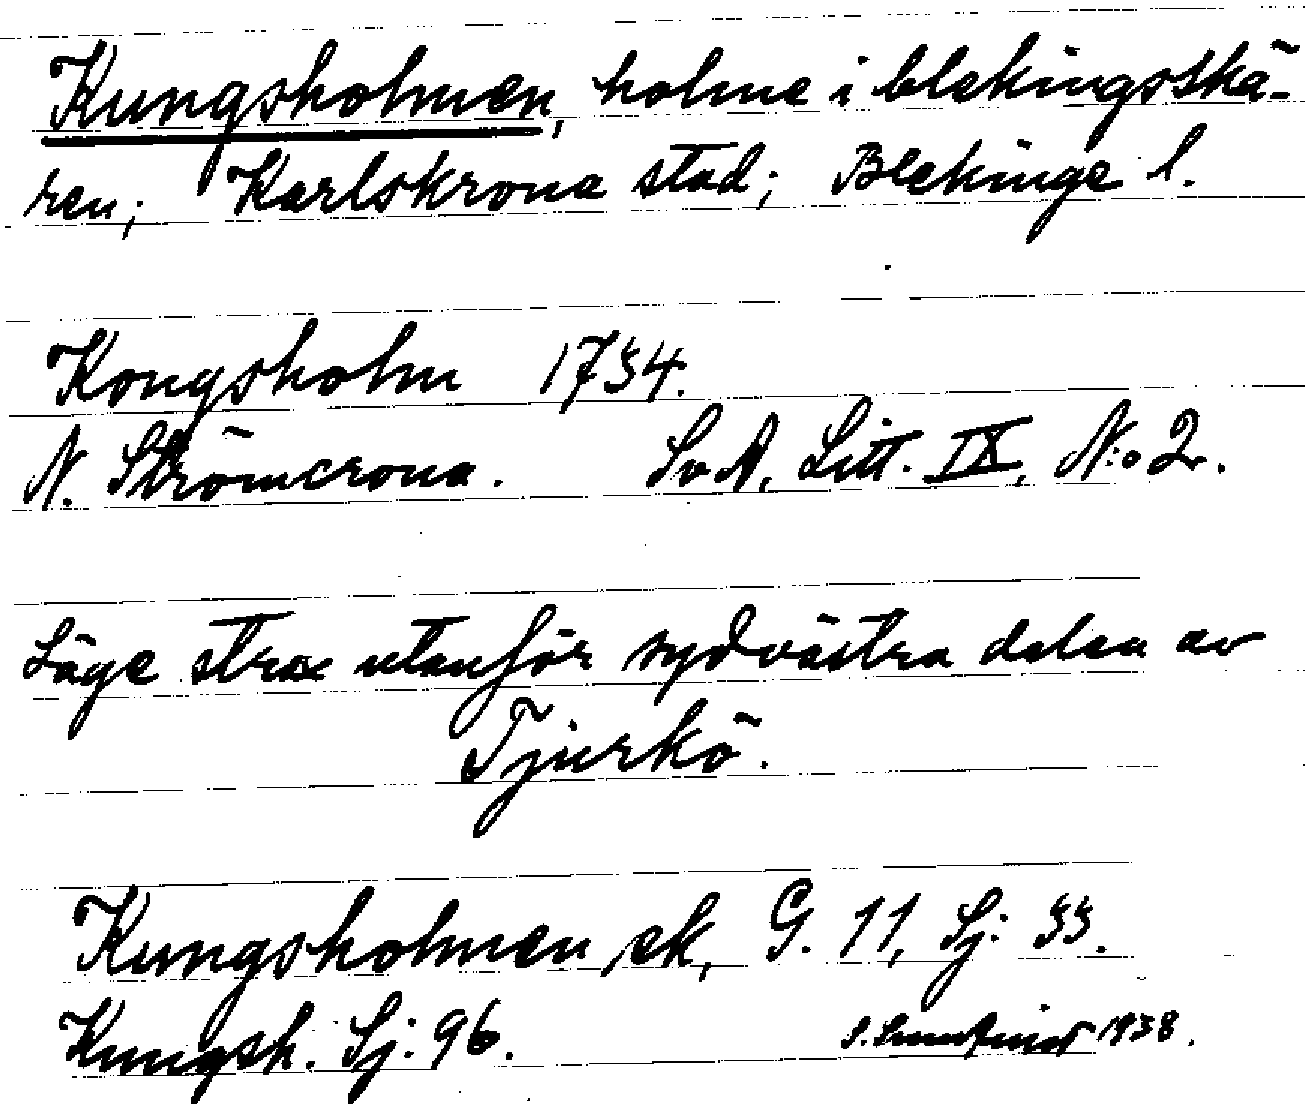 Kungsholmen, holme i blekingsskä-
ren; Karlskrona stad; Blekinge l.
Kongsholm 1734.
N. Strömcrona. SvA, Litt. IX, N:o 2.
Läge strax utanför sydvästra delen av
Tjurkö.
Kungsholmen, ek, G. 11, Sj: 33.
Kungsh. Sj: 96. 1938.